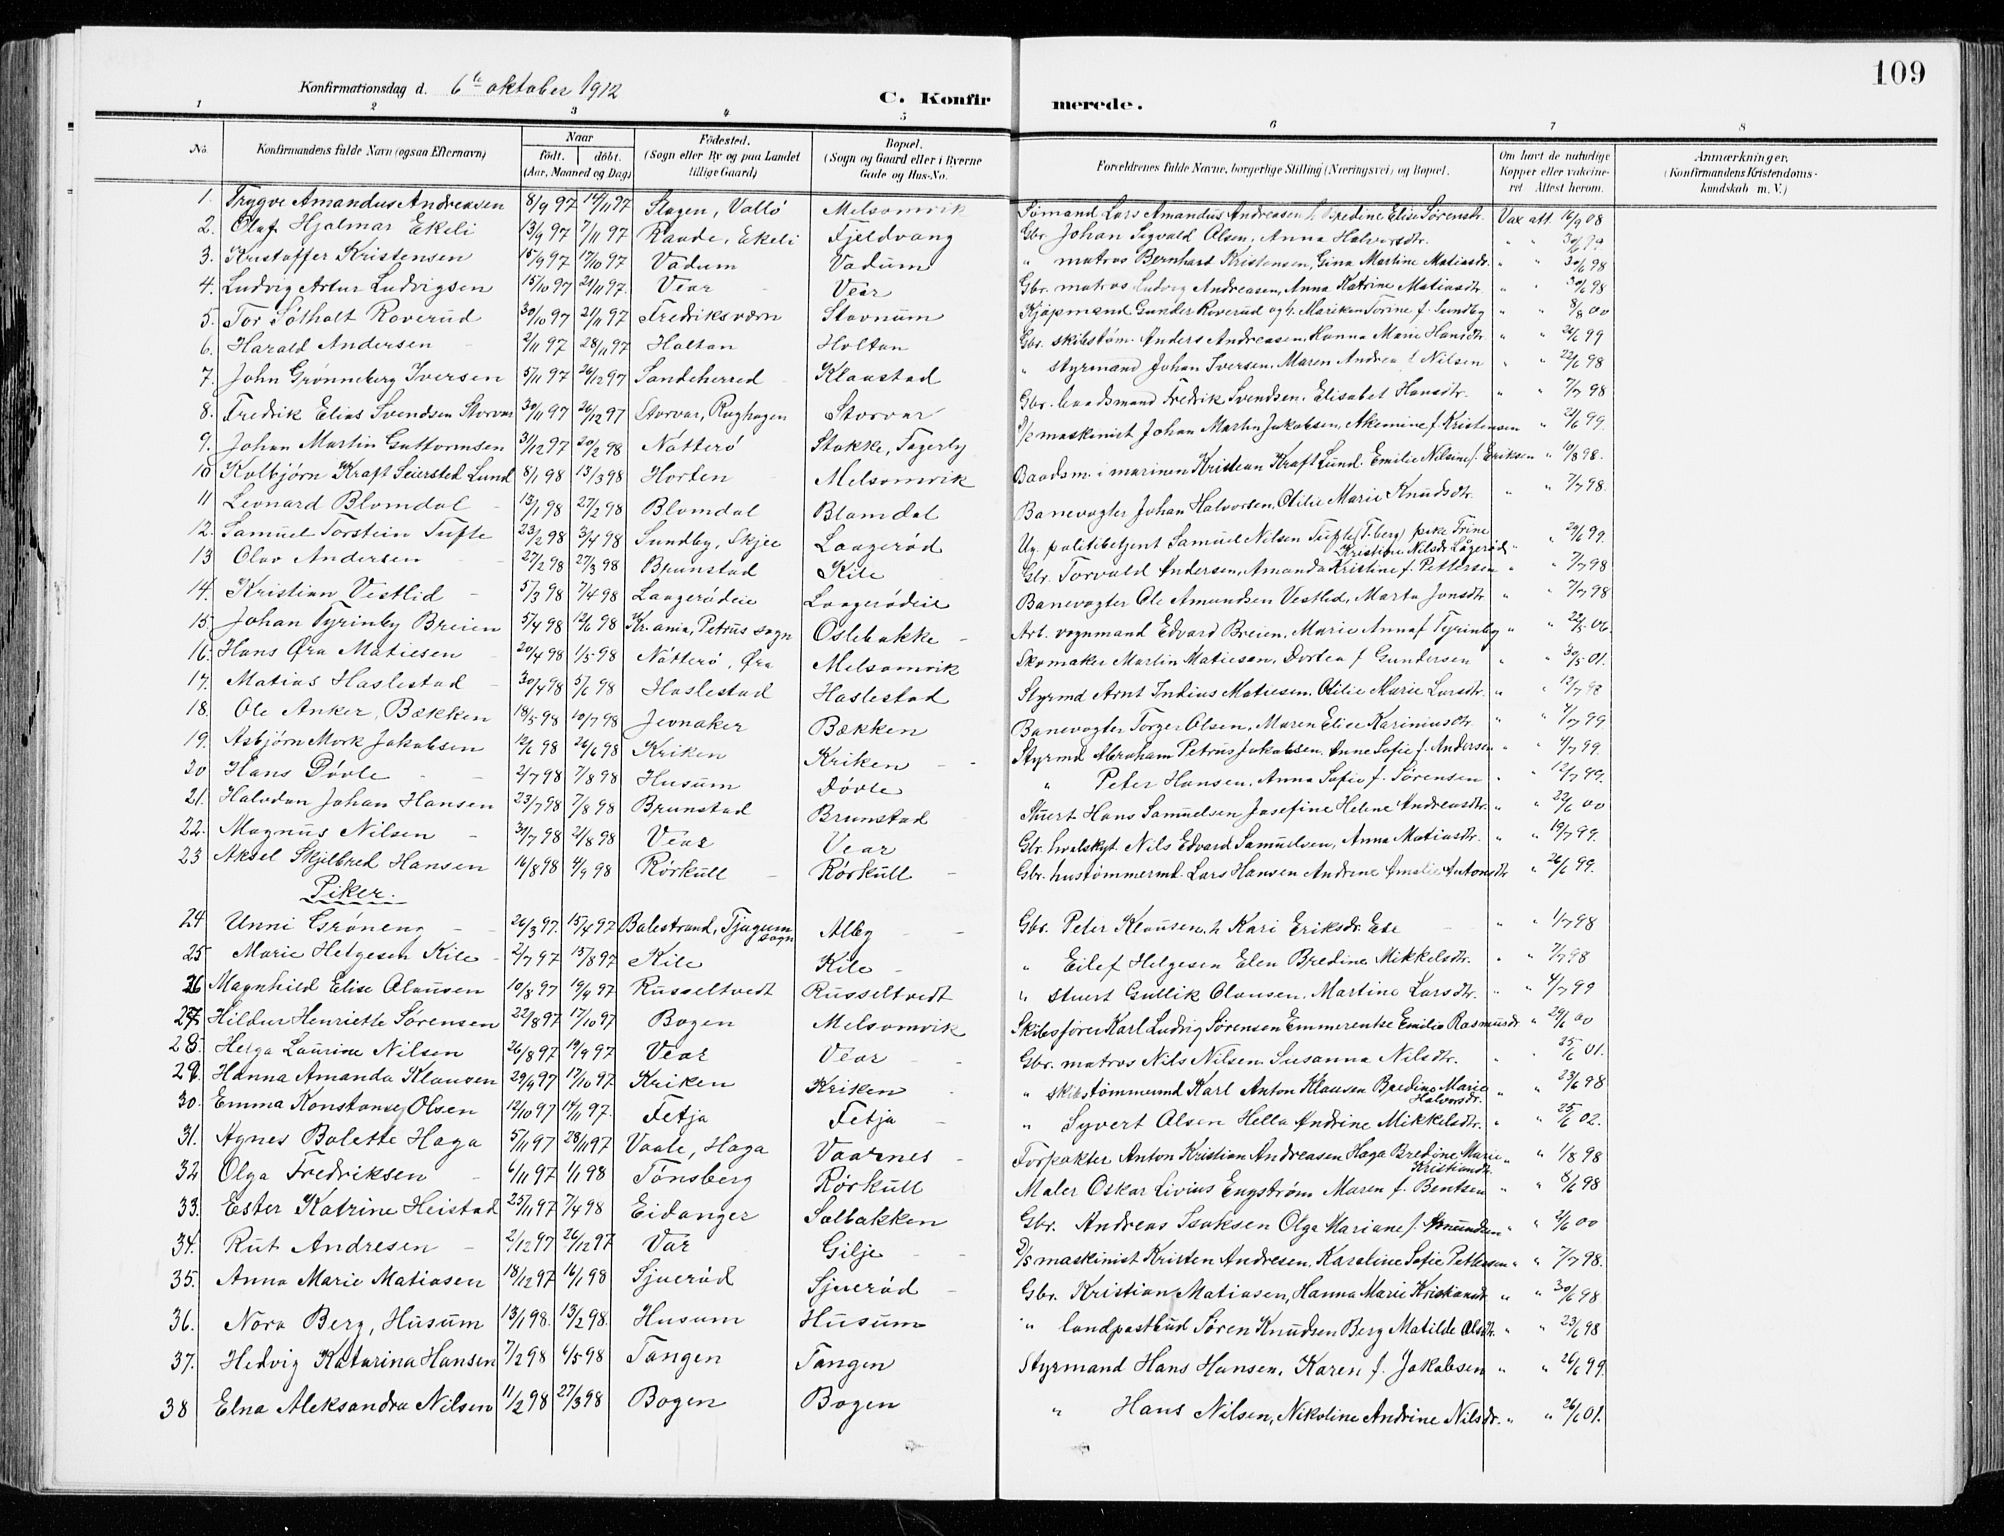 109
Konfirmationsdag d. 6te oktober 1912
C. Konfirmerede.
1 2 3 4 5 6 7 8
No. Konfirmandens fulde Navn (ogsaa Efternavn) Naar födt. döbt. (Aar, Maaned og Dag) Födested. (Sogn eller By og paa Landet tillige Gaard) Bopæl. (Sogn og Gaard eller i Byerne Gade og Hus-No. Forældrenes fulde Navne, borgerlige Stilling (Næringsvei) og Bopæl. Om havt de naturlige Kopper eller vakcineret Attest herom. Anmærkninger. (Konfirmandens Kristendomskundskab m. V.)
1. Trygve Amandus Andreasen 8/9 97 14/11 97 Slagen, Vallö Melsomvik Sømand Lars Amandus Andreasen h. Bredine Elise Sørensdtr. Vax att. 16/9 08
2. Olaf Hjalmar Ekeli 13/9 97 7/11 97 Raade, Ekeli Fjeldvang Gbr. Johan Sigvald Olsen, Anna Halvorsdtr. " " 30/6 99
3. Kristoffer Kristensen 15/9 97 17/10 97 Vadum Vadum " matros Bernhard Kristensen, Gina Martine Matiasdtr. " " 30/6 98
4. Ludvig Artur Ludvigsen 15/10 97 21/11 97 Vear Vear Gbr. matros Ludvig Andreasen, Anna Katrine Matiasdtr " " 30/6 98
5. Tor Sötholt Roverud 30/10 97 21/11 97 Fredriksværn Stavnum Kjøpmand Gunder Roverud og h. Mariken Torine f. Sundby " " 8/8 00
6. Harald Andersen 2/11 97 28/11 97 Holtan Holtan Gbr. skibstøm. Anders Andreasen, Hanna Marie Hansdtr " " 26/6 99
7. John Grønneberg Iversen 5/11 97 26/12 97 Sandeherred Klaastad " styrmand Johan Iversen, Maren Andrea f. Nilsen " " 22/6 98
8. Fredrik Elias Svendsen Storvar 30/11 97 26/12 97 Storvar, Rughagen Storvar Gbr. baadsmand Fredrik Svendsen, Elisabet Hansdtr. " " 7/7 98
9. Johan Martin Guttormsen 31/12 97 20/2 98 Nötterö Stokke, Fagerly maskinist Johan Martin Jakobsen, Akemine f. Kristensen " 21/6 99
10 Kolbjörn Kraft Seiersted Lund 8/1 98 13/3 98 Horten Melsomvik Baadsm. i marinen Kristian Kraft Lund. Emilie Nilsine f. Eriksen " 10/8 98.
11 Leonard Blomdal 13/1 98 27/2 98 Blomdal Blomdal Banevogter Johan Halvorsen, Otilie Marie Knudsdtr. " " 7/7 98.
12. Samuel Torstein Tufte 23/2 98 3/4 98 Sundby, Skjee Laagerød Ug. politibetjent Samuel Nilsen Tufte (T.berg) pike Trine Kristine Nilsdr Lågerød " 29/6 99.
13 Olav Andersen 27/2 98 27/3 98 Brunstad Kile Gbr. Torvald Andersen, Amanda Kristine f. Pettersen " " 7/7 98
14. Kristian Vestlid 5/3 98 7/4 98 Laagerødeie Laagerødeie Banevogter Ole Amundsen Vestlid, Marta Jonsdtr " " 7/7 98
15. Johan Tyrinby Breien 5/4 98 12/6 98 Kr.ania, Petrus sogn Oslebakke Arb. vognmand Edvard Breien, Marie Anna f Tyrinby " " 22/5 06.
16. Hans Øra Matiesen 20/4 98 1/5 98 Nötterö, Øra Melsomvik Skomaker Martin Matiesen, Dortea f Gundersen " " 30/5 01.
17. Matias Haslestad 30/4 98 5/6 98 Haslestad Haslestad Styrmd Arnt Indius Matiesen. Otilie Marie Larsdtr. " " 12/7 98
18. Ole Anker, Bækken 18/5 98 10/7 98 Jevnaker Bækken Banevogter Torger Olsen, Maren Elise Kariniusdtr " " 7/7 99
19. Asbjørn Mork Jakobsen 12/6 98 26/6 98 Kriken Kriken Styrmd Abraham Petrus Jakobsen, Anne Sofie f. Andersen " " 4/7 99
20 Hans Dövle 2/7 98 7/8 98 Husum Dövle " Peter Hansen, Anna Sofie f. Sørensen " " 12/7 99.
21. Halvdan Johan Hansen 23/7 98 7/8 98 Brunstad Brunstad Stuert Hans Samuelsen Josefine Helene Andreasdtr. " " 22/6 00
22. Magnus Nilsen 30/7 98 21/8 98 Vear Vear Gbr. hvalskyt. Nils Edvard Samuelsen, Anna Matiasdtr. " " 19/7 99.
23 Aksel Skjelbred Hansen 16/8 98 4/9 98 Rörkull Rörkull Gbr. hustømmermd. Lars Hansen Andrine Amalie Antonsdtr " 26/6 99.
Piker.
24 Unni Gröneng 26/3 97. 15/4 97 Balestrand, Tjugum sogn Alby Gbr. Peter Klausen, h Kari Eriksdr. Ese " " 1/7 98
25 Marie Helgesen Kile 2/7 97 15/8 97 Kile Kile " Eilef Helgesen Elen Bredine Mikkelsdtr. " " 7/7 98
26 Magnhild Elise Olausen 10/8 97 19/9 97 Russeltvedt Russeltvedt " stuert Gullik Olausen, Martine Larsdtr. " " 4/7 99
27 Hildur Henriette Sörensen 22/8 97 17/10 97 Bogen Melsomvik Skibsfører Karl Ludvig Sørensen Emmerentse Emilie Rasmusdr " 29/6 00
28. Helga Laurine Nilsen 26/8 97 19/9 97 Vear Vear Gbr. matros Nils Nilsen Susanna Nilsdtr. " " 25/6 01.
29. Hanna Amanda Klausen 29/9 97 17/10 97 Kriken Kriken " skibstømmermd Karl Anton Klausen Bredine Marie Halvorsdr. " " 23/6 98
30. Emma Konstanse Olsen 12/10 97 14/11 97. Fetja Fetja " Syvert Olsen Hella Andrine Mikkelsdtr. " " 25/6 02.
31. Agnes Bolette Haga 5/11 97 28/11 97 Vaale, Haga Vaarnes Forpakter Anton Kristian Andreasen Haga Bredine Marie Kristiandtr. " " 1/8 98
32 Olga Fredriksen 6/11 97 1/1 98 Tönsberg Rörkull Maler Oskar Livius Engström Maren f. Bentsen " " 8/6 98
33. Ester Katrine Heistad 25/11 97 7/4 98 Eidanger Solbakken Gbr. Andreas Isaksen Olga Mariane f. Amundsen " " 2/6 00
34. Rut Andresen 2/12 97 26/12 97 Vår Gilje maskinist Kristen Andresen, Karoline Sofie Pettersen " " 7/7 98.
35. Anna Marie Matiasen 18/12 97 16/1 98 Sjuerød Sjuerød Gbr. Kristian Matiasen, Hanna Marie Kristiansdr " " 30/6 98
36. Nora Berg, Husum 13/1 98. 13/2 98. Husum Husum " landpostbud Søren Knudsen Berg Matilde Olsdtr. " " 23/6 98
37. Hedvig Katarina Hansen 7/2 98 6/5 98 Tangen Tangen Styrmand Hans Hansen, Karen f. Jakobsen " " 26/6 99.
38 Elna Aleksandra Nilsen 11/2 98 27/3 98 Bogen Bogen " Hans Nilsen, Nikoline Andrine Nilsdr. " " 26/6 01.